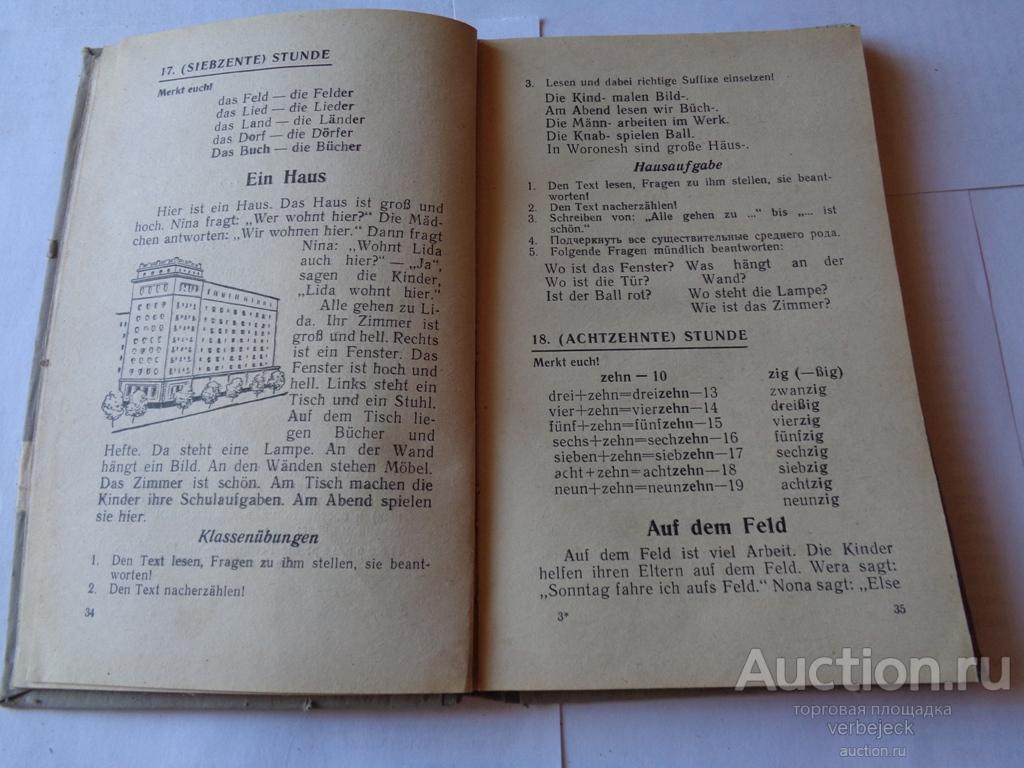 17. (SIEBZENTE) STUNDE
Merkt euch!
das Feld — die Felder
das Lied — die Lieder
das Land — die Länder
das Dorf — die Dörfer
Das Buch — die Bücher
Ein Haus
Hier ist ein Haus. Das Haus ist groß und
hoch. Nina fragt: „Wer wohnt hier?" Die Mäd-
chen antworten: „Wir wohnen hier." Dann fragt
Nina: „Wohnt Lida
auch hier?" — „Ja",
sagen die Kinder,
„Lida wohnt hier."
Alle gehen zu Li-
da. Ihr Zimmer ist
groß und hell. Rechts
ist ein Fenster. Das
Fenster ist hoch und
hell. Links steht ein
Tisch und ein Stuhl.
Auf dem Tisch lie-
gen Bücher und
Hefte. Da steht eine Lampe. An der Wand
hängt ein Bild. An den Wänden stehen Möbel.
Das Zimmer ist schön. Am Tisch machen die
Kinder ihre Schulaufgaben. Am Abend spielen
sie hier.
Klassenübungen
1. Den Text lesen, Fragen zu ihm stellen, sie beant-
worten!
2. Den Text nacherzählen!
34
3. Lesen und dabei richtige Suffixe einsetzen!
Die Kind- malen Bild-.
Am Abend lesen wir Büch-.
Die Männ- arbeiten im Werk.
Die Knab- spielen Ball.
In Woronesh sind große Häus-.
Hausaufgabe
1. Den Text lesen, Fragen zu ihm stellen, sie beant-
worten!
2. Den Text nacherzählen!
3. Schreiben von: „Alle gehen zu ..." bis „... ist
schön."
4. Подчеркнуть все существительные среднего рода.
5. Folgende Fragen mündlich beantworten:
Wo ist das Fenster? Was hängt an der
Wo ist die Tür? Wand?
Ist der Ball rot? Wo steht die Lampe?
Wie ist das Zimmer?
18. (ACHTZEHNTE) STUNDE
Merkt euch!
zehn — 10 zig (—ßig)
drei+zehn=dreizehn—13 zwanzig
vier+zehn=vierzehn—14 dreißig
fünf+zehn=fünfzehn—15 vierzig
sechs+zehn=sechzehn—16 fünfzig
sieben+zehn=siebzehn—17 sechzig
acht+zehn=achtzehn—18 siebzig
neun+zehn=neunzehn—19 achtzig
neunzig
Auf dem Feld
Auf dem Feld ist viel Arbeit. Die Kinder
helfen ihren Eltern auf dem Feld. Wera sagt:
„Sonntag fahre ich aufs Feld." Nona sagt: „Else
3* 35
Auction.ru
торговая площадка
verbejeck
auction.ru